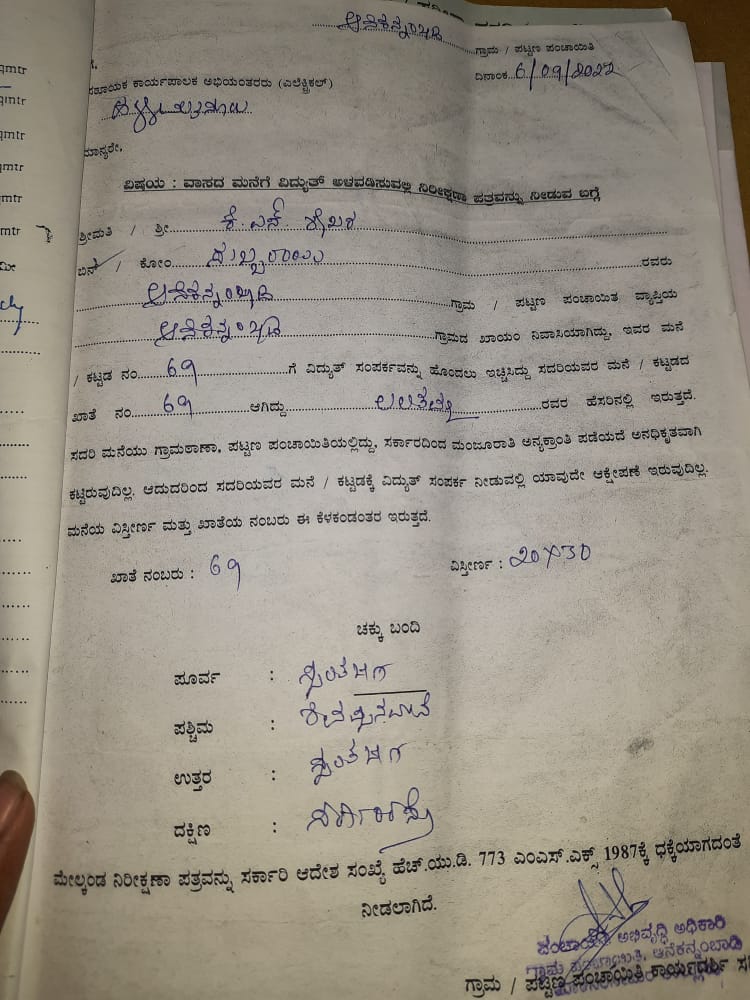 ಆನೆಕನ್ನಂಬಾಡಿ
ಗ್ರಾಮ / ಪಟ್ಟಣ ಪಂಚಾಯಿತಿ
ದಿನಾಂಕ 6/09/2022
ಸಹಾಯಕ ಕಾರ್ಯಪಾಲಕ ಅಭಿಯಂತರರು (ಎಲೆಕ್ಟ್ರಿಕಲ್)
ಮಾನ್ಯರೇ,
ವಿಷಯ : ವಾಸದ ಮನೆಗೆ ವಿದ್ಯುತ್ ಅಳವಡಿಸುವಲ್ಲಿ ನಿರೀಕ್ಷಣಾ ಪತ್ರವನ್ನು ನೀಡುವ ಬಗ್ಗೆ
ಶ್ರೀಮತಿ / ಶ್ರೀ ಕೆ ಎನ್ ಶೇಖರ
ಬಿನ್ / ಕೋಂ ಸುಬ್ಬರಾಯ ರವರು
ಆನೆಕನ್ನಂಬಾಡಿ ಗ್ರಾಮ / ಪಟ್ಟಣ ಪಂಚಾಯಿತ ವ್ಯಾಪ್ತಿಯ
ಆನೆಕನ್ನಂಬಾಡಿ ಗ್ರಾಮದ ಖಾಯಂ ನಿವಾಸಿಯಾಗಿದ್ದು, ಇವರ ಮನೆ
/ ಕಟ್ಟಡ ನಂ 69 ಗೆ ವಿದ್ಯುತ್ ಸಂಪರ್ಕವನ್ನು ಹೊಂದಲು ಇಚ್ಚಿಸಿದ್ದು ಸದರಿಯವರ ಮನೆ / ಕಟ್ಟಡದ
ಖಾತೆ ನಂ 69 ಆಗಿದ್ದು ರವರ ಹೆಸರಿನಲ್ಲಿ ಇರುತ್ತದೆ.
ಸದರಿ ಮನೆಯು ಗ್ರಾಮಠಾಣಾ, ಪಟ್ಟಣ ಪಂಚಾಯಿತಿಯಲ್ಲಿದ್ದು, ಸರ್ಕಾರದಿಂದ ಮಂಜೂರಾತಿ ಅನ್ಯಕ್ರಾಂತಿ ಪಡೆಯದೆ ಅನಧಿಕೃತವಾಗಿ
ಕಟ್ಟಿರುವುದಿಲ್ಲ. ಆದುದರಿಂದ ಸದರಿಯವರ ಮನೆ / ಕಟ್ಟಡಕ್ಕೆ ವಿದ್ಯುತ್ ಸಂಪರ್ಕ ನೀಡುವಲ್ಲಿ ಯಾವುದೇ ಆಕ್ಷೇಪಣೆ ಇರುವುದಿಲ್ಲ.
ಮನೆಯ ವಿಸ್ತೀರ್ಣ ಮತ್ತು ಖಾತೆಯ ನಂಬರು ಈ ಕೆಳಕಂಡಂತರ ಇರುತ್ತದೆ.
ಖಾತೆ ನಂಬರು : 69 ವಿಸ್ತೀರ್ಣ : 20X30
ಚಕ್ಕು ಬಂದಿ
ಪೂರ್ವ : ಸ್ವಂತ ಜಾಗ
ಪಶ್ಚಿಮ :
ಉತ್ತರ : ಸ್ವಂತ ಜಾಗ
ದಕ್ಷಿಣ :
ಮೇಲ್ಕಂಡ ನಿರೀಕ್ಷಣಾ ಪತ್ರವನ್ನು ಸರ್ಕಾರಿ ಆದೇಶ ಸಂಖ್ಯೆ ಹೆಚ್.ಯು.ಡಿ. 773 ಎಂಎಸ್.ಎಕ್ಸ್ 1987ಕ್ಕೆ ಧಕ್ಕೆಯಾಗದಂತೆ
ನೀಡಲಾಗಿದೆ.
ಪಂಚಾಯಿತಿ ಅಭಿವೃದ್ಧಿ ಅಧಿಕಾರಿ
ಗ್ರಾಮ ಪಂಚಾಯಿತಿ, ಆನೆಕನ್ನಂಬಾಡಿ
ಗ್ರಾಮ / ಪಟ್ಟಣ ಪಂಚಾಯಿತಿ ಕಾರ್ಯದರ್ಶಿ
qmtr
qmtr
qmtr
mtr
mtr
mtr